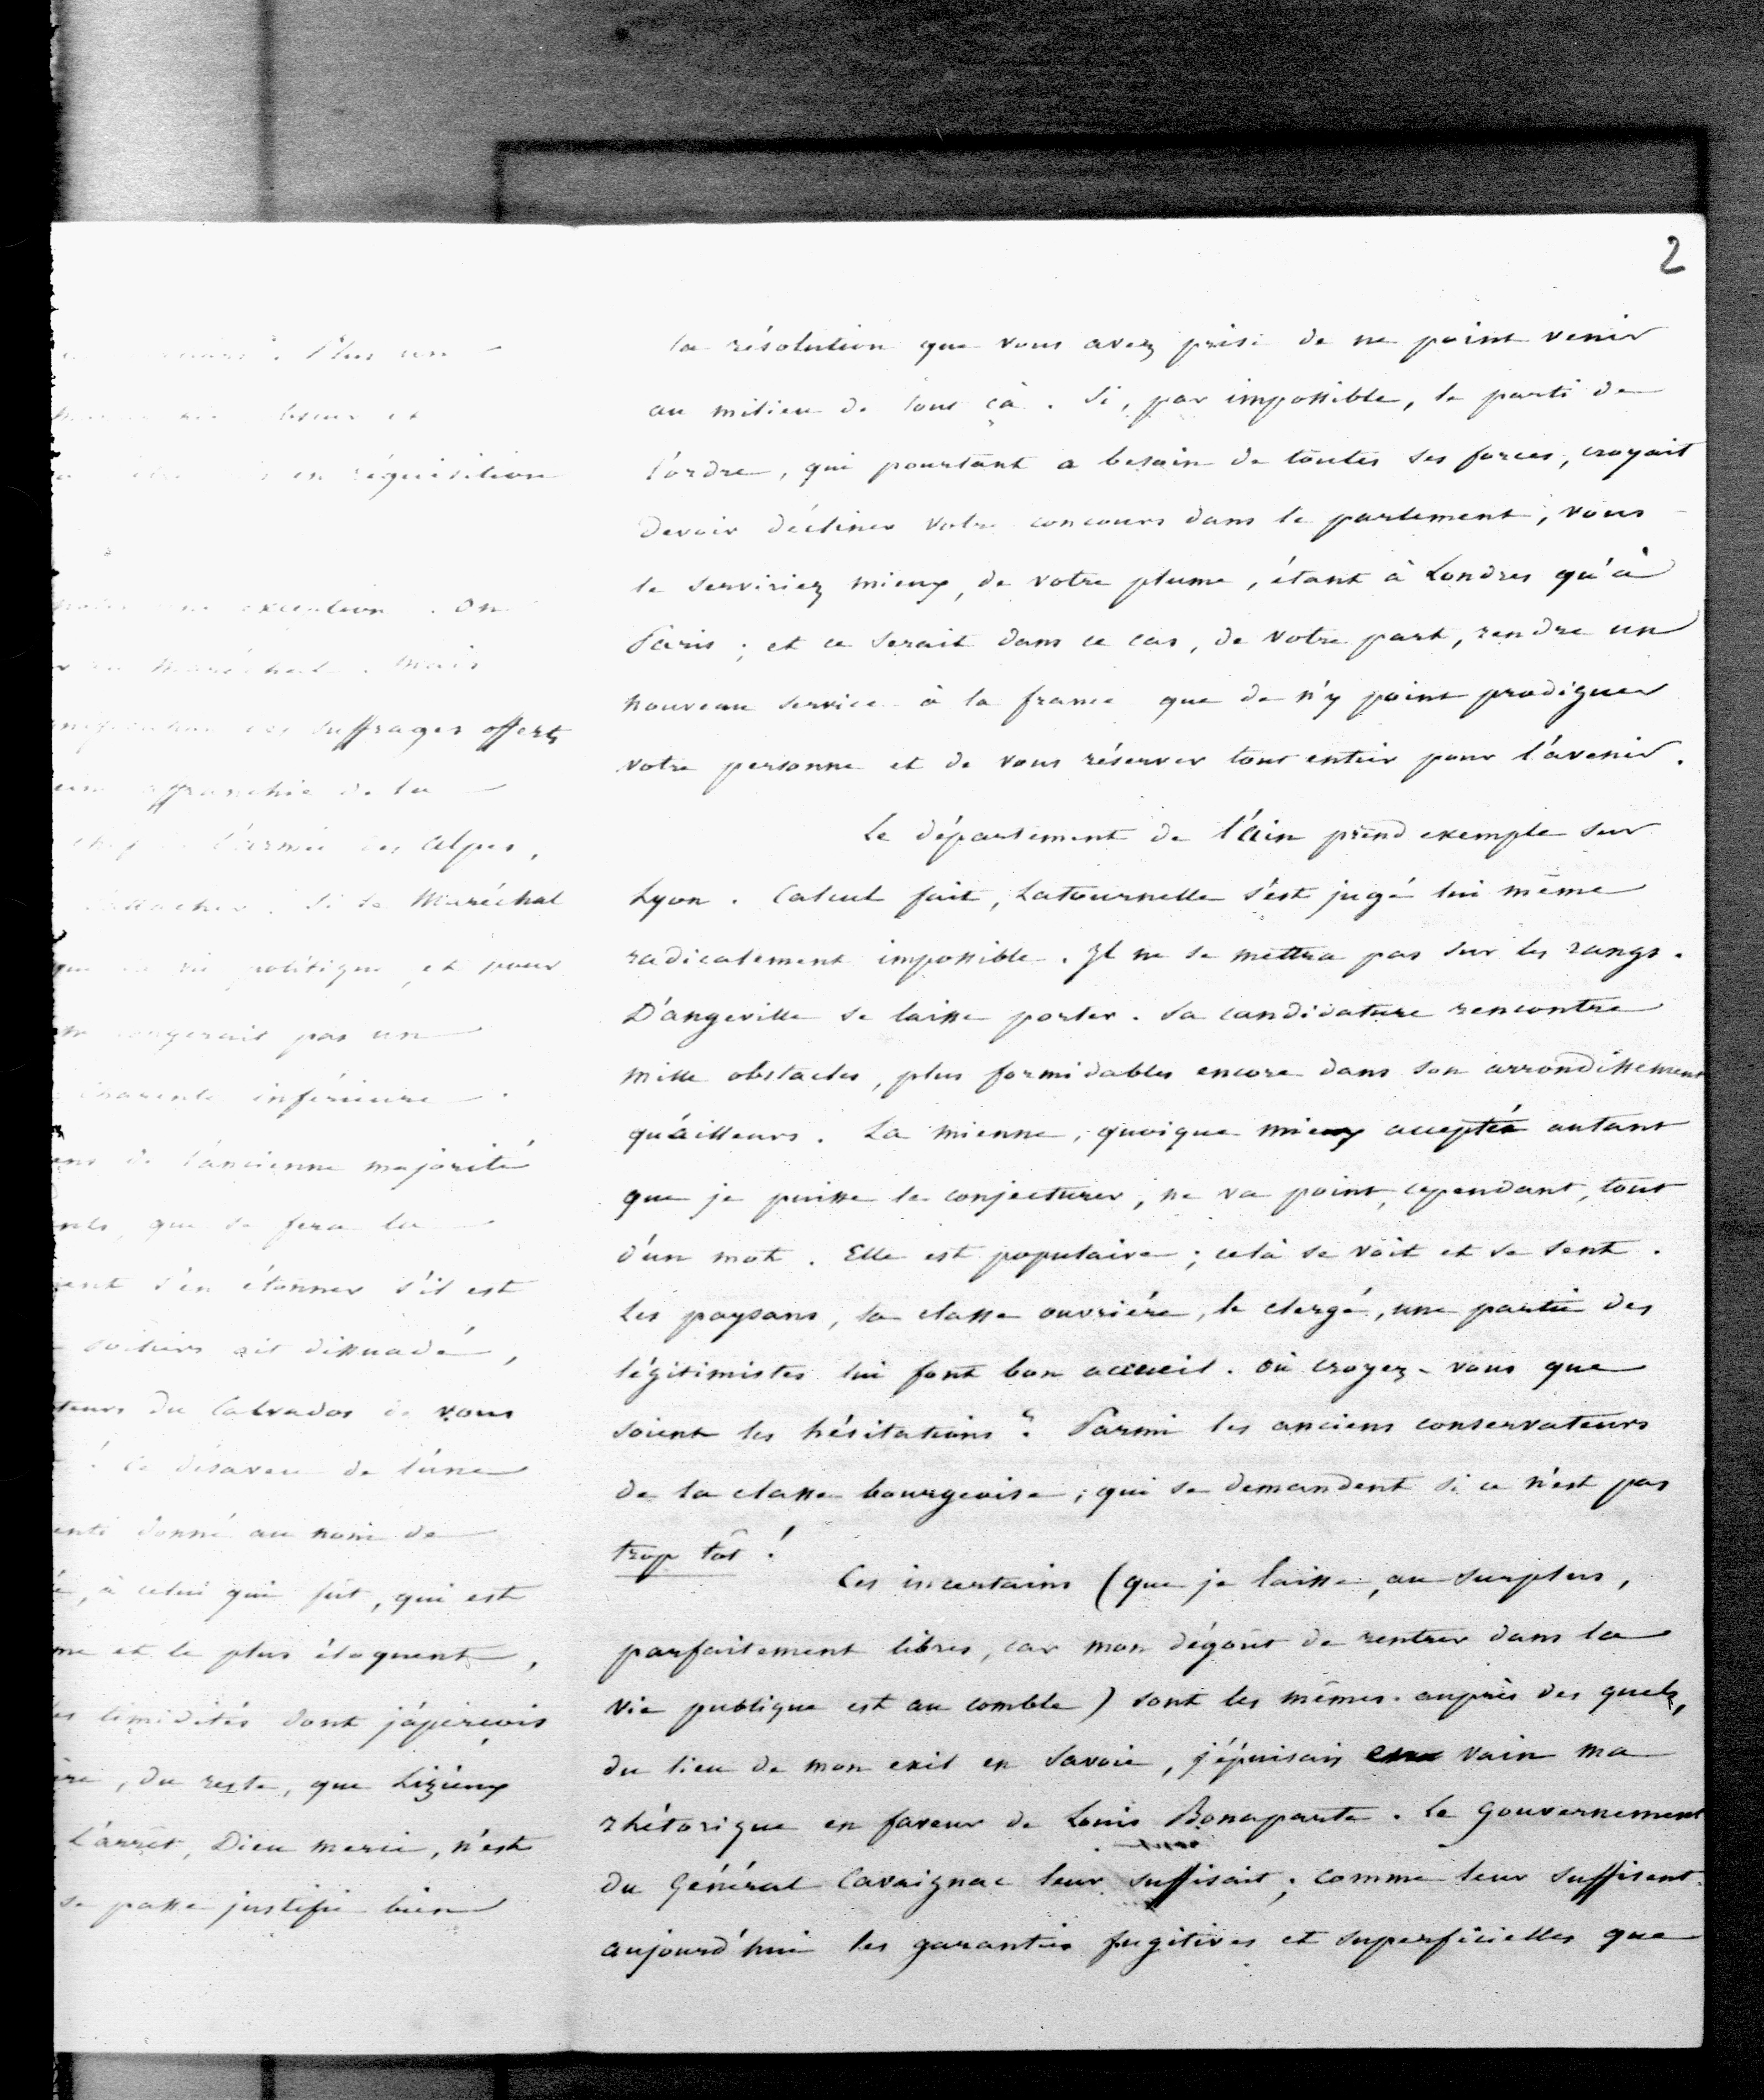 2
Plus un
en réquisition
On
Maréchal. Mais
suffrages offerts
affranchie de la
l'armée des Alpes,
Si le Maréchal
politique, et pour
pas un
inférieure.
de l'ancienne majorité
que se fera la
s'en étonner s'il est
ait dissuadé,
du Calvados de vous
! Ce désaveu de l'une
donné au nom de
, à celui qui fût, qui est
et le plus éloquent,
timidités dont j'aperçois
, du reste, que Lizieux
L'arrêt, Dieu merci, n'est
se passe justifie bien
la résolution que vous avez prise de ne point venir
au milieu de tout çà. Si, par impossible, le parti de
l'ordre, qui pourtant a besoin de toutes ses forces, croyait
devoir décliner votre concours dans le parlement, vous
le serviriez mieux, de votre plume, étant à Londres qu'à
Paris; et ce serait dans ce cas, de votre part, rendre un
nouveau service à la france que de n'y point prodiguer
votre personne et de vous réserver tout entier pour l'avenir.
Le département de l'ain prend exemple sur
Lyon. Calcul fait, Latournelle s'est jugé lui même
radicalement impossible. Il ne se mettra pas sur les rangs.
D'angeville se laisse porter. Sa candidature rencontre
mille obstacles, plus formidables encore dans son arrondissement
qu'ailleurs. La mienne, quoique mieux acceptée autant
que je puisse le conjecturer, ne va point, cependant, tout
d'un mot. Elle est populaire; celà se voit et se sent.
Les paysans, la classe ouvrière, le clergé, une partie des
légitimistes lui font bon accueil. Où croyez-vous que
soient les hésitations? Parmi les anciens conservateurs
de la classe bourgeoise, qui se demandent si ce n'est pas
trop tôt!
Ces incertains (que je laisse, au surplus,
parfaitement libres, car mon dégoût de rentrer dans la
vie publique est au comble) sont les mêmes auprès des quels,
du lieu de mon exil en Savoie, j'épuisais en vain ma
rhétorique en faveur de Louis Bonaparte. Le Gouvernement
du Général Cavaignac leur suffisait; comme leur suffisent
aujourd'hui les garanties fugitives et superficielles que